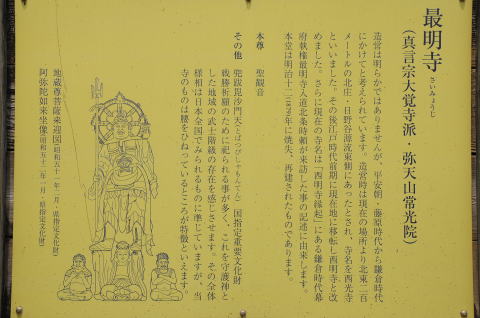 最明寺
さいみょうじ
(真言宗大覚寺派・弥天山常光院)
造営は明らかではありませんが、平安朝・藤原時代から鎌倉時代
にかけてと考えられています。造営時は現在の場所より北東二百
メートルの北庄・日野谷源流東側にあったとされ、寺名を西光寺
といいました。その後江戸時代前期に現在地に移転し西明寺と改
めました。さらに現在の寺名は「西明寺縁起」にある鎌倉時代幕
府執権最明寺入道北条時頼が来訪した事の記述に由来します。
本堂は明治十二(1879)年に焼失、再建されたものであります。
本尊 聖観音
その他 兜跋毘沙門天(とばつびしゃもんてん) 国指定重要文化財
戦勝祈願のために祀られる事が多く、これを守護神と
した地域の武士階級の存在を感じさせます。その全体
様相は日本全国でみられるものに準じていますが、当
寺のものは腰をひねっているところが特徴といえます。
地蔵尊菩薩来迎図(昭和五十二年一月・県指定文化財)
阿弥陀如来坐像(昭和五十二年一月・県指定文化財)